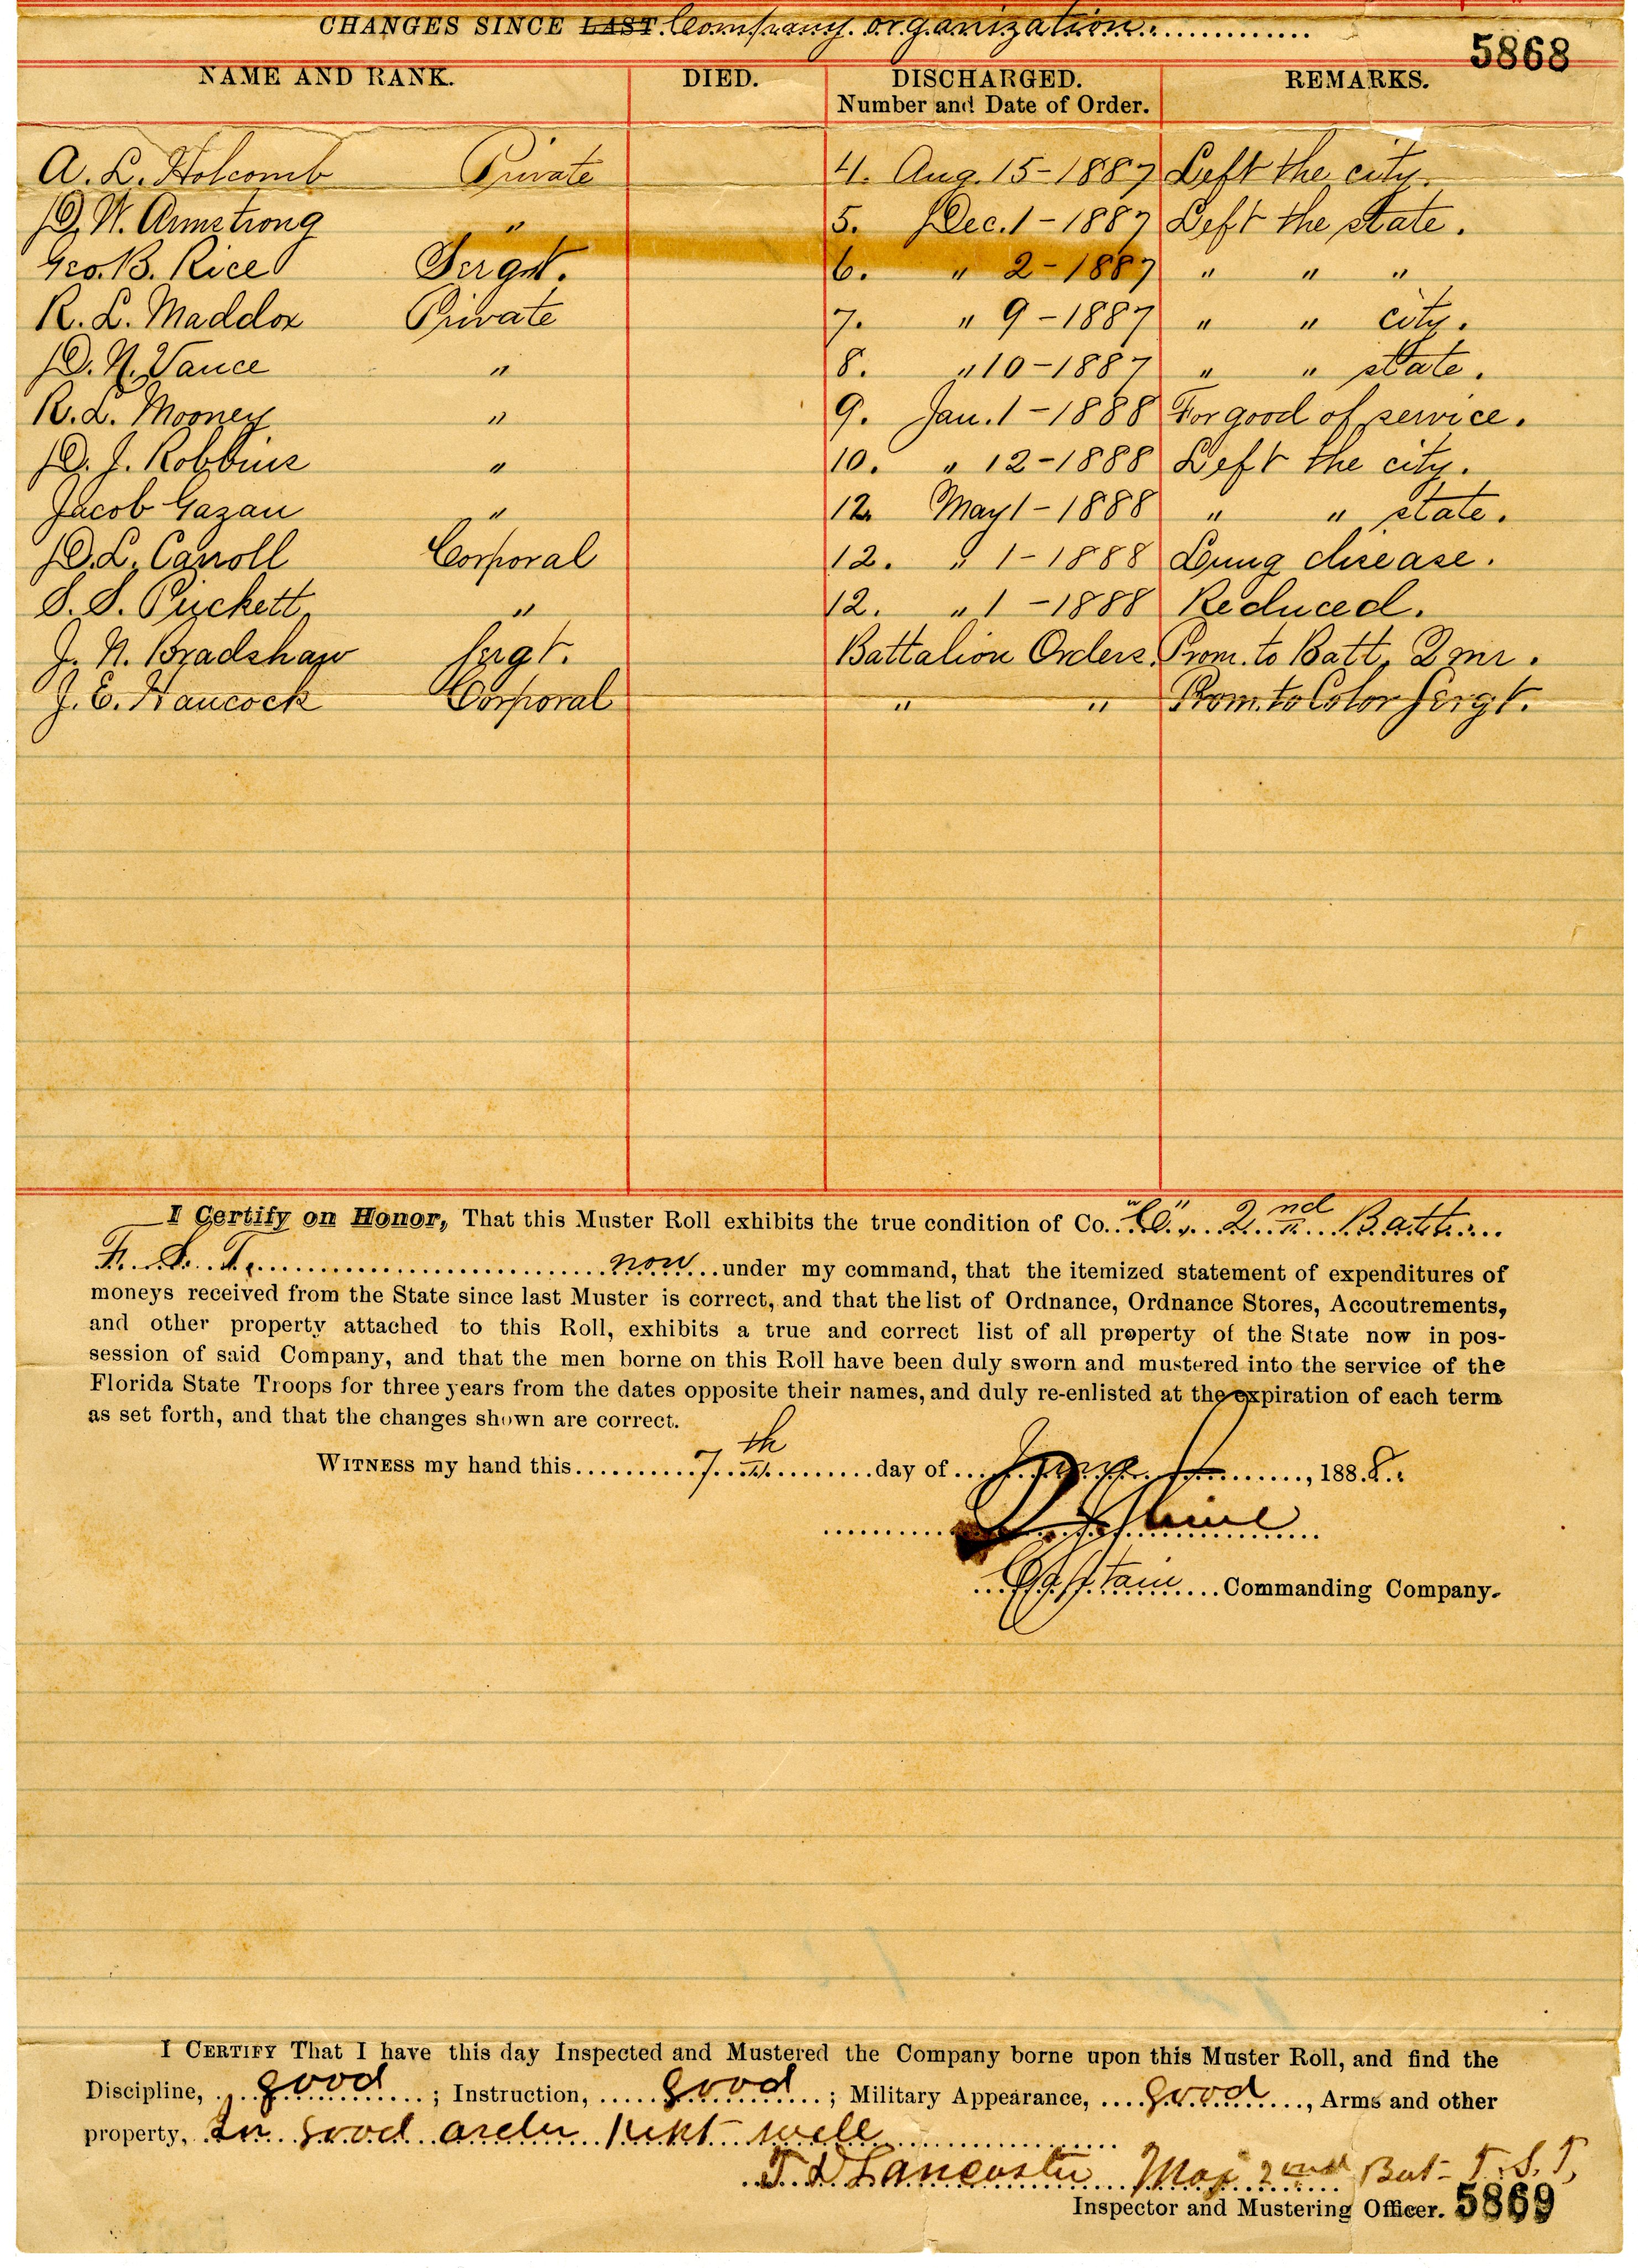 CHANGES SINCE LAST Company organization.
5868
NAME AND RANK. DIED. DISCHARGED. Number and Date of Order. REMARKS.
A. L. Holcomb Private 4. Aug. 15-1887 Left the city.
D. W. Armstrong " 5. Dec. 1-1887 Left the state.
Geo. B. Rice Sergt. 6. " 2-1887 " " "
R. L. Maddox Private 7. " 9-1887 " " city.
D. N. Vance " 8. " 10-1887 " " state.
R. L. Mooney " 9. Jan. 1-1888 For good of service.
D. J. Robbins " 10. " 12-1888 Left the city.
Jacob Gazan " 12 May 1-1888 " " state.
D. L. Carroll Corporal 12. " 1-1888 Lung disease.
S. S. Puckett " 12. " 1-1888 Reduced.
J. N. Bradshaw Sergt. Battalion Orders. Prom. to Batt. Q mr.
J. E. Hancock Corporal " " Prom. to Color Sergt.
I Certify on Honor, That this Muster Roll exhibits the true condition of Co. "C", 2nd Batt.
F. S. T. now under my command, that the itemized statement of expenditures of
moneys received from the State since last Muster is correct, and that the list of Ordnance, Ordnance Stores, Accoutrements,
and other property attached to this Roll, exhibits a true and correct list of all property of the State now in pos-
session of said Company, and that the men borne on this Roll have been duly sworn and mustered into the service of the
Florida State Troops for three years from the dates opposite their names, and duly re-enlisted at the expiration of each term
as set forth, and that the changes shown are correct.
WITNESS my hand this 7th day of June, 1888.
Shine
Captain Commanding Company.
I CERTIFY That I have this day Inspected and Mustered the Company borne upon this Muster Roll, and find the
Discipline, good; Instruction, good; Military Appearance, good, Arms and other
property, In good order kept well
T. D Lancaster Maj 2nd Bat- F. S. T,
Inspector and Mustering Officer. 5869